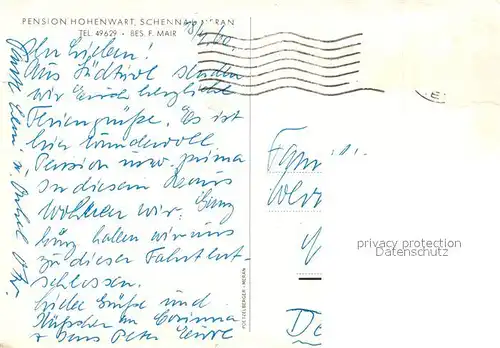 PENSION HOHENWART, SCHENNA - MERAN
TEL. 49629 • BES. F. MAIR
Ihr Lieben!
Aus Südtirol senden
wir Euch herzliche
Feriengrüße. Es ist
hier wundervoll
Pension usw. prima
In diesem Haus
wohnen wir. Ganz
haben wir uns
zu dieser Fahrt ent-
schlossen.
Liebe Grüße und
Küßchen an Corinna
Hans Peter Eure
Tante Leni u. Onkel
Fam
privacy protection
Datenschutz
POETZELBERGER - MERAN